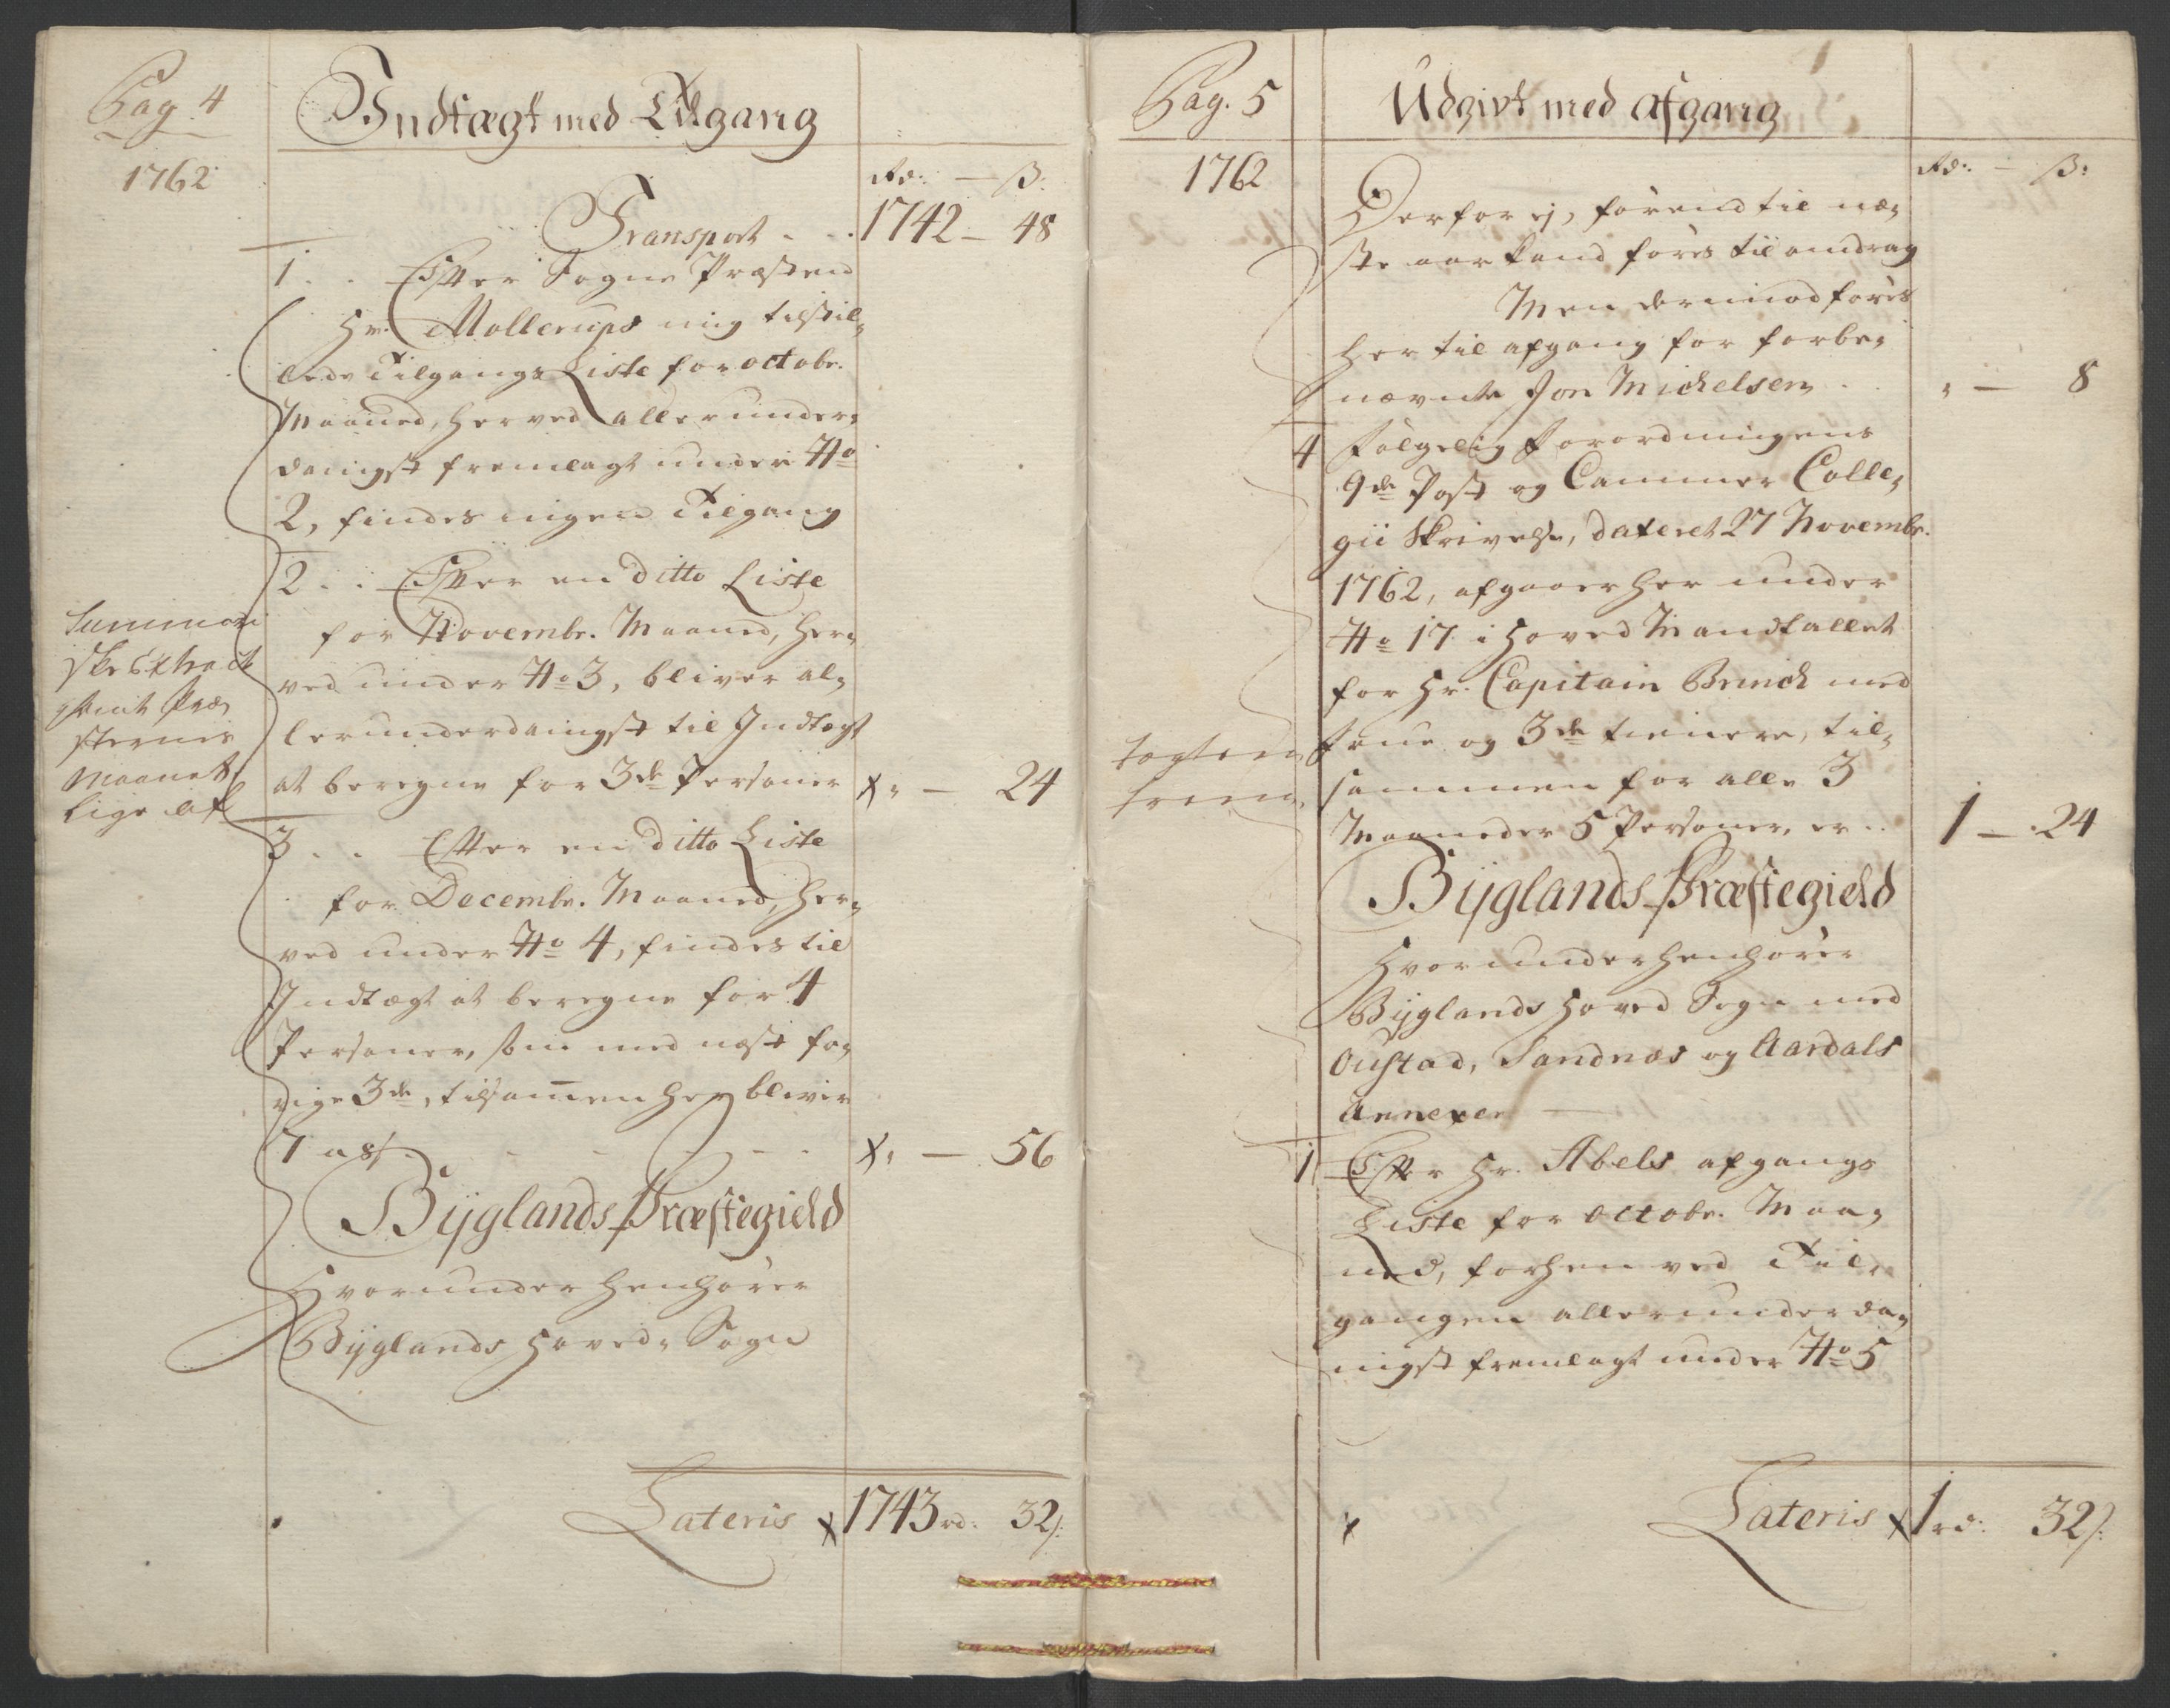 Pag. 4
Indtægt med Tilgang
1762
Rd: — ß:
Transport - - 1742 — 48
1 . . Efter Sogne Præsten
Hr. Mollerups mig tilstil,
lede Tilgangs Liste for octobr.
Maaned, herved allerunder,
danigst fremlagt under No
2, findes ingen Tilgang
2 . . Efter en ditto Liste
for Novembr. Maaned, her,
ved under No 3, bliver al,
lerunderdanigst til Indtægt
at beregne for 3de Personer x „ — 24
3 . . Efter en ditto Liste
for Decembr. Maaned, her,
ved under No 4, findes til
Indtægt at beregne for 4
Personer, som med næst for,
rige 3de, tilsamen her bliver
7 a 8ß . - - - - x „ — 56
Byglands Præstegield
Hvorunder henhörer
Byglands Hoved, Sogn
Lateris x 1743 rd: 32ß:
Summari
ske Extract
samt Præ,
sternes
Maanet
lige af
Pag. 5
Udgivt med afgang
1762
Rd: — ß:
Derfor ej, förend til næ,
ste aar kand föres til andrag
Men derimod föres
her til afgang for forbe,
nævnte Jon Michelsen . . „ — 8
4 Fölgelig Forordningens
9de Post og Cammer Colle,
gii Skrivelse, dateret 27 Novembr.
1762, afgaaer her under
No 17 i Hoved Mandtallet
for Hr. Capitain Brinch med
Frue og 3de tienere, til,
sammen for alle 3
Maaneder 5 Personer, er . . 1 — 24
Byglands Præstegield
Hvorunder henhörer
Byglands Hoved Sogn med
Oustad, Sandnæs og Aardals
Annexer
1 Efter Hr. Abels afgangs
Liste for octobr. Maa,
ned, forhen ved Til,
gangen allerunderda,
nigst fremlagt under No 5
x Lateris x 1 rd: 32ß: